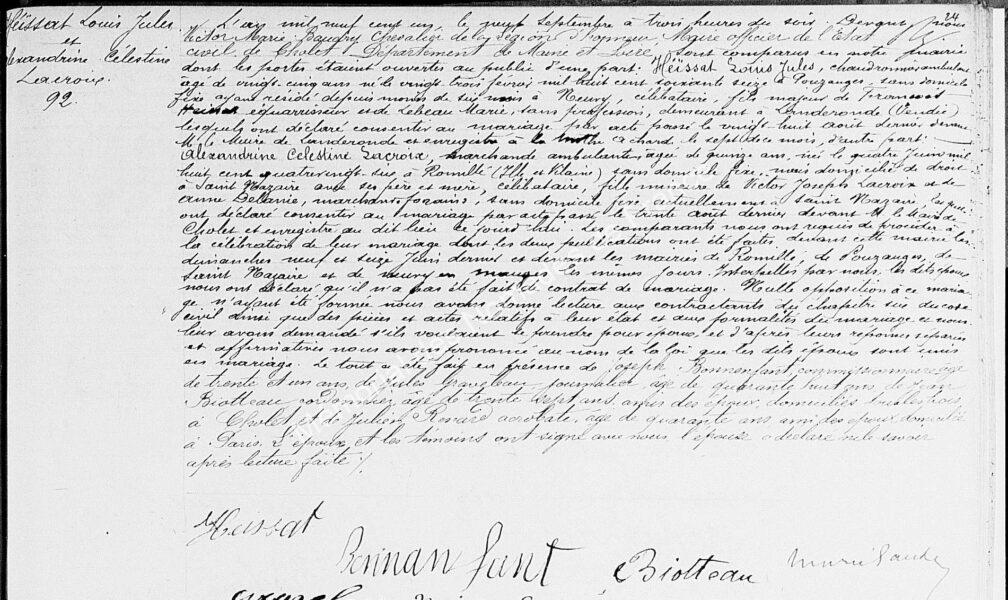 Heïssat Louis Jules
et
Alexandrine Célestine
Lacroix.
92.
24
L'an mil neuf cent un, le neuf Septembre à trois heures du soir. Devant nous
Victor Marie Baugny Chevalier de la Légion d'honneur Maire officier de l'Etat
civil de Cholet, Département de Maine et Loire, sont comparus en notre mairie
dont les portes étaient ouvertes au public d'une part: Heïssat Louis Jules, chaudronnier ambulant
agé de vingt-cinq ans né le vingt trois février mil huit cent soixante seize à Pouzauges, sans domicile
fixe ayant résidé depuis moins de six mois à Neuvy, célibataire, fils majeur de François
Heissat équarrisseur et de Lebeau Marie, sans profession, demeurant à Landeronde (Vendée)
lesquels ont déclaré consenter au mariage par acte passé le vingt huit août dernier devant
M. le Maire de Landeronde et enregistré à la Mothe Achard le sept de ce mois, d'autre part.
Alexandrine Celestine Lacroix, marchande ambulante agée de quinze ans, née le quatre Juin mil
huit cent quatre vingt six à Romillé (Ille et Vilaine) sans domicile fixe, mais domicilié de droit
à Saint Nazaire avec ses père et mère, célibataire, fille mineure de Victor Joseph Lacroix et de
Anne Dellanie, marchands forains, sans domicile fixe, actuellement à Saint Nazaire, lesquels
ont déclaré consenter au mariage par acte passé le trente août dernier devant M. le Maire de
Cholet et enregistré au dit lieu ce jourd'hui. Les comparants nous ont requis de procéder à
la célébration de leur mariage dont les deux publications ont été faites devant cette mairie les
dimanches neuf et seize Juin dernier et devant les mairies de Romillé, de Pouzauges, de
Saint Nazaire et de Neuvy en Mauges les mêmes jours. Interpellés par nous, les dits époux
nous ont déclaré qu'il n'a pas été fait de contrat de mariage. Nulle opposition à ce maria-
ge n'ayant été formée nous avons donné lecture aux contractants du chapitre six du code
civil ainsi que des pièces et actes relatifs à leur état et aux formalités du mariage et nous
leur avons demandé s'ils voulaient se prendre pour époux, et d'après leurs réponses séparées
et affirmatives nous avons prononcé au nom de la loi que les dits époux sont unis
en mariage. Le tout a été fait en présence de Joseph Bonnenfant commissionnaire agé
de trente et un ans, de Jules journalier, agé de quarante huit ans, de Jean
Biotteau, cordonnier, agé de trente sept ans, amis des époux, domiciliés tous les trois
à Cholet et de Julien Renard acrobate, agé de quarante ans ami des époux domicilié
à Paris. L'époux et les témoins ont signé avec nous l'épouse a déclaré ne le savoir
après lecture faite ./.
Heissat
Bonnan fant
Biotteau